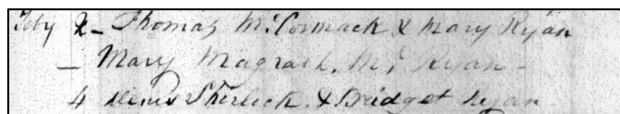 Feby 2 - Thomas McCormack & Mary Ryan
- Mary Magrath. Ml Ryan -
4 Denis Sherlock. & Bridget Ryan